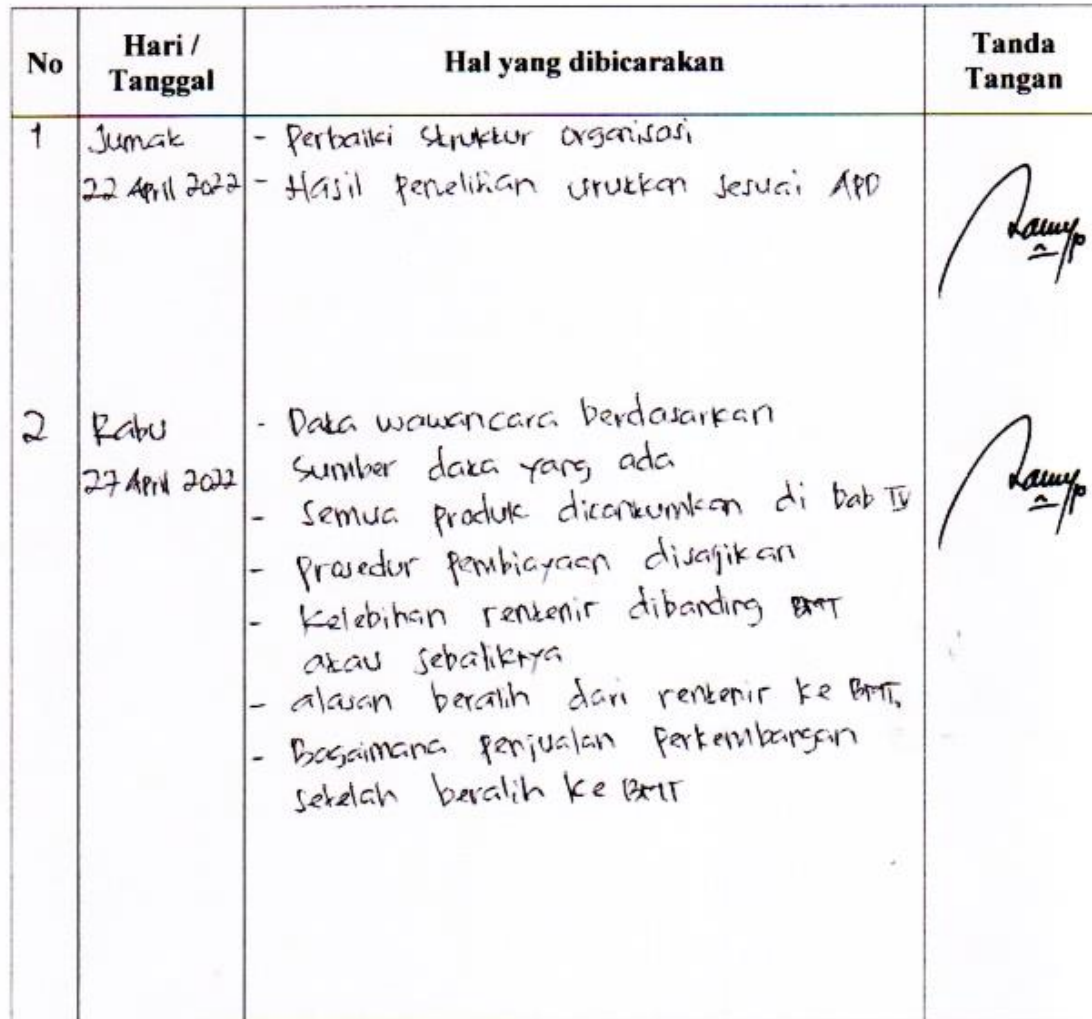 No
Hari /
Tanggal
Hal yang dibicarakan
Tanda
Tangan
1
Jumat
22 April 2022
- Perbaiki struktur organisasi
- Hasil penelitian urutkan sesuai APD
2
Rabu
27 April 2022
- Data wawancara berdasarkan
sumber data yang ada
- Semua produk dicantumkan di bab IV
- Prosedur pembiayaan disajikan
- Kelebihan rentenir dibanding BMT
atau sebaliknya
- alasan beralih dari rentenir ke BMT.
- Bagaimana penjualan perkembangan
setelah beralih ke BMT